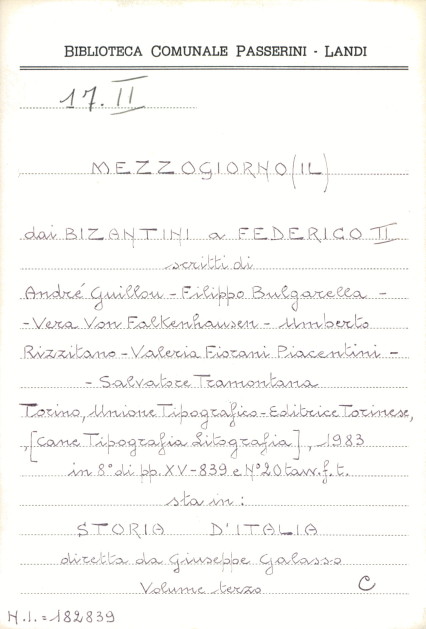 BIBLIOTECA COMUNALE PASSERINI - LANDI
17. II
MEZZOGIORNO (IL)
dai BIZANTINI a FEDERICO II
scritti di
André Guillou - Filippo Bulgarella -
- Vera Von Falkenhausen - Umberto
Rizzitano - Valeria Fiorani Piacentini -
- Salvatore Tramontana
Torino, Unione Tipografico-Editrice Torinese,
, [Cane Tipografia Litografia], 1983
in 8° di pp. XV-839 e N° 20 tavv. f. t.
sta in:
STORIA D'ITALIA
diretta da Giuseppe Galasso
Volume terzo C
N.I. = 182839